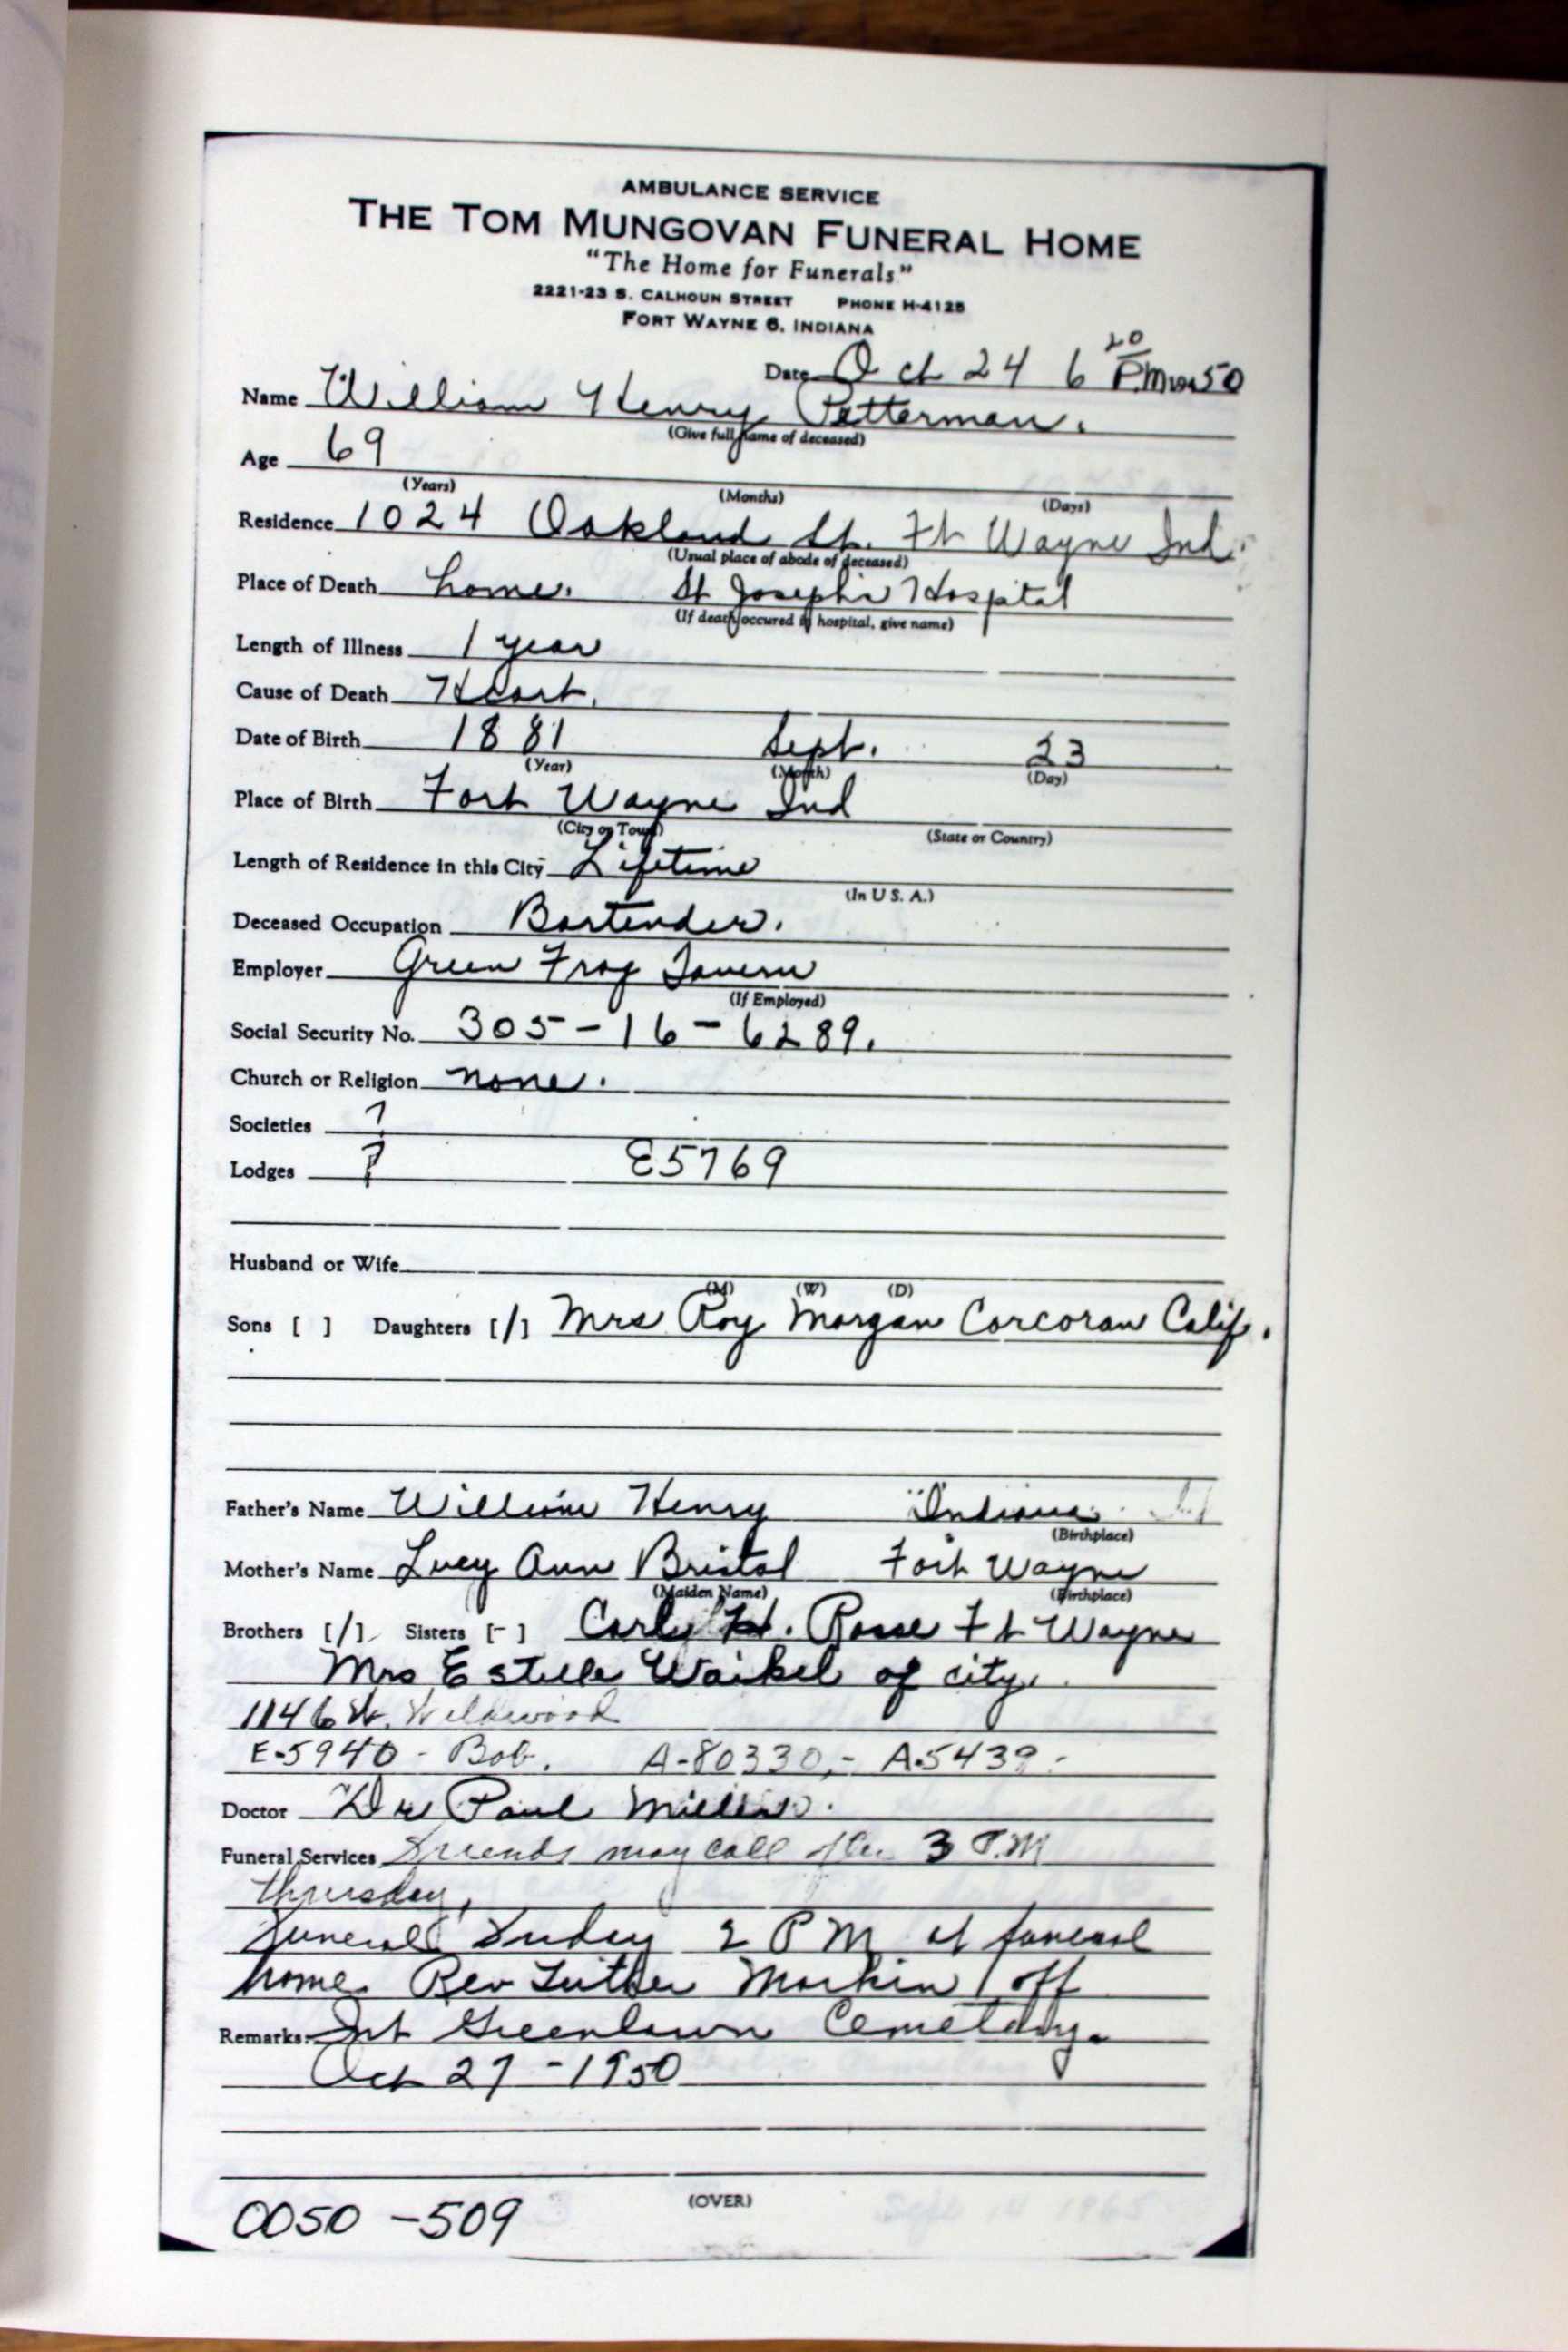 AMBULANCE SERVICE
THE TOM MUNGOVAN FUNERAL HOME
"The Home for Funerals"
2221-23 S. CALHOUN STREET PHONE H-4125
FORT WAYNE 6, INDIANA
Date Oct 24 6 20 P.M. 1950
Name William Henry Petterman.
(Give full name of deceased)
Age 69
(Years) (Months) (Days)
Residence 1024 Oakland St. Ft Wayne Ind.
(Usual place of abode of deceased)
Place of Death home. St Joseph's Hospital
(If death occured in hospital, give name)
Length of Illness 1 year
Cause of Death Heart.
Date of Birth 1881 Sept. 23
(Year) (Month) (Day)
Place of Birth Fort Wayne Ind
(City or Town) (State or Country)
Length of Residence in this City Lifetime
(In U S. A.)
Deceased Occupation Bartender.
Employer Green Frog Tavern
(If Employed)
Social Security No. 305-16-6289.
Church or Religion none.
Societies ?
Lodges ? E5769
Husband or Wife
(M) (W) (D)
Sons [ ] Daughters [/] Mrs Roy Morgan Corcoran Calif.
Father's Name William Henry Indiana
(Birthplace)
Mother's Name Lucy Ann Bristol Fort Wayne
(Maiden Name) (Birthplace)
Brothers [/] Sisters [-] Carl H. Rosse Ft Wayne
Mrs Estelle Waikel of city.
1146 W. Wildwood
E-5940 - Bob. A-80330,- A-5439-
Doctor Dr Paul Miller.
Funeral Services Friends may call after 3 P.M
Thursday,
Funeral Friday 2 PM at funeral
home. Rev Luther Markin off
Remarks: Int Greenlawn Cemetery.
Oct 27-1950
(OVER)
OO50-509